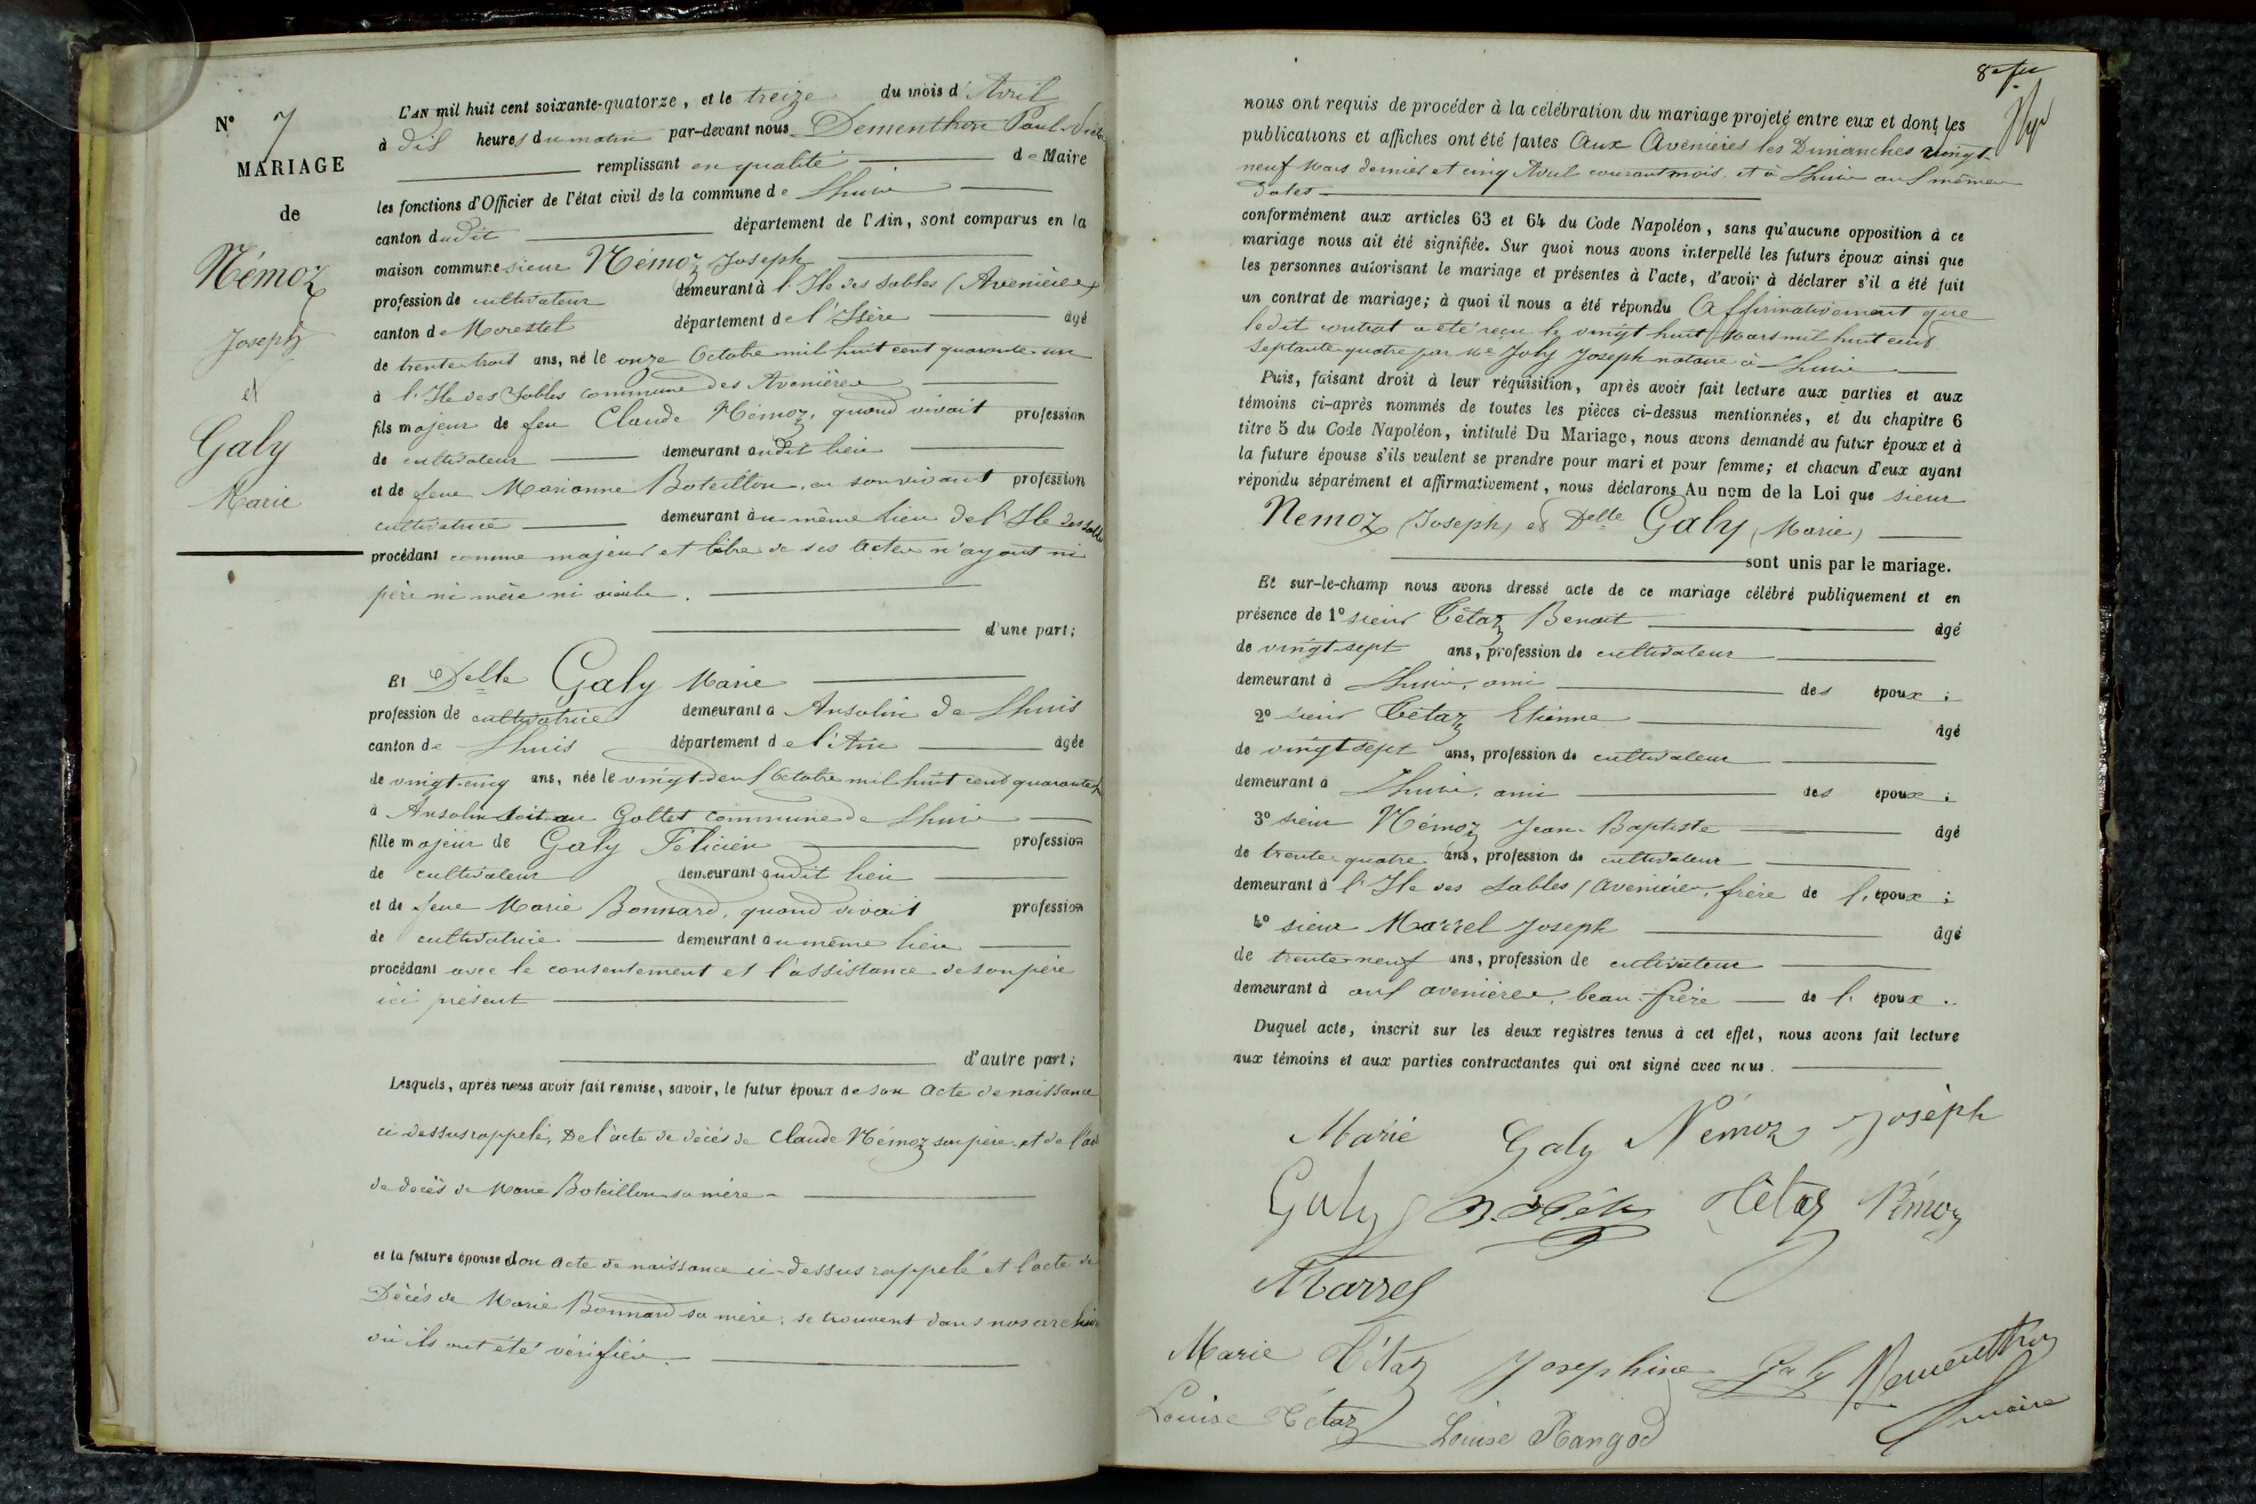 N° 7
MARIAGE
de
Némoz
Joseph
et
Galy
Marie
L'AN mil huit cent soixante-quatorze, et le treize du mois d'Avril
à dix heures du matin par-devant nous Dementhon Paul
remplissant en qualité de Maire
les fonctions d'Officier de l'état civil de la commune de Lhuis
canton dudit département de l'Ain, sont comparus en la
maison commune sieur Némoz Joseph
profession de cultivateur demeurant à l'Ile des Sables (Avenières)
canton de Morestel département de l'Isère âgé
de trente trois ans, né le onze Octobre mil huit cent quarante un
à l'Ile des Sables commune des Avenières
fils majeur de feu Claude Némoz, quand vivait profession
de cultivateur demeurant audit lieu
et de feue Marianne Boteillon, en son vivant profession
cultivatrice demeurant au même lieu de l'Ile des Sables
procédant comme majeur et libre de ses actes n'ayant ni
père ni mère ni aieuls.
d'une part;
Et Delle Galy Marie
profession de cultivatrice demeurant à Ansolin de Lhuis
canton de Lhuis département de l'Ain âgée
de vingt-cinq ans, née le vingt-deux Octobre mil huit cent quarante
à Ansolin soit au Gollet commune de Lhuis
fille majeur de Galy Félicien profession
de cultivateur demeurant audit lieu
et de feue Marie Bonnard, quand vivait profession
de cultivatrice demeurant au même lieu
procédant avec le consentement et l'assistance de son père
ici présent
d'autre part;
Lesquels, après nous avoir fait remise, savoir, le futur époux de son acte de naissance
ci-dessus rappelé, De l'acte de décès de Claude Némoz son père et de l'act
de décès de Marie Boteillon sa mère
et la future épouse dou acte de naissance ci-dessus rappelé et l'acte de
Décès de Marie Bonnard sa mère, se trouvent dans nos archives
où ils ont été vérifiés.
8e
nous ont requis de procéder à la célébration du mariage projeté entre eux et dont les
publications et affiches ont été faites Aux Avenières les Dimanches vingt
neuf Mars dernier et cinq Avril courant mois, et à Lhuis aux mêmes
dates
conformément aux articles 63 et 64 du Code Napoléon, sans qu'aucune opposition à ce
mariage nous ait été signifiée. Sur quoi nous avons interpellé les futurs époux ainsi que
les personnes autorisant le mariage et présentes à l'acte, d'avoir à déclarer s'il a été fait
un contrat de mariage; à quoi il nous a été répondu Affirmativement que
le dit contrat a été reçu le vingt huit Mars mil huit cent
septante quatre par Me Joly Joseph notaire à Lhuis
Puis, faisant droit à leur réquisition, après avoir fait lecture aux parties et aux
témoins ci-après nommés de toutes les pièces ci-dessus mentionnées, et du chapitre 6
titre 5 du Code Napoléon, intitulé Du Mariage, nous avons demandé au futur époux et à
la future épouse s'ils veulent se prendre pour mari et pour femme; et chacun d'eux ayant
répondu séparément et affirmativement, nous déclarons Au nom de la Loi que sieur
Nemoz (Joseph) et Delle Galy (Marie)
sont unis par le mariage.
Et sur-le-champ nous avons dressé acte de ce mariage célébré publiquement et en
présence de 1° sieur Tétaz Benoit âgé
de vingt-sept ans, profession de cultivateur
demeurant à Lhuis, ami des époux;
2° sieur Tétaz Etienne âgé
de vingt sept ans, profession de cultivateur
demeurant à Lhuis, ami des époux;
3° sieur Némoz Jean-Baptiste âgé
de trente quatre ans, profession de cultivateur
demeurant à l'Ile des Sables (Avenières, frère de l' époux;
4° sieur Marrel Joseph âgé
de trente neuf ans, profession de cultivateur
demeurant à aux avenières, beau-frère de l' époux.
Duquel acte, inscrit sur les deux registres tenus à cet effet, nous avons fait lecture
aux témoins et aux parties contractantes qui ont signé avec nous.
Marie Galy Némoz Joséph
Galy B. Téta Tétaz Némoz
Marrel
Marie Tétaz Josephine Galy Dementhon
Louise Tétaz Louise Rangod maire